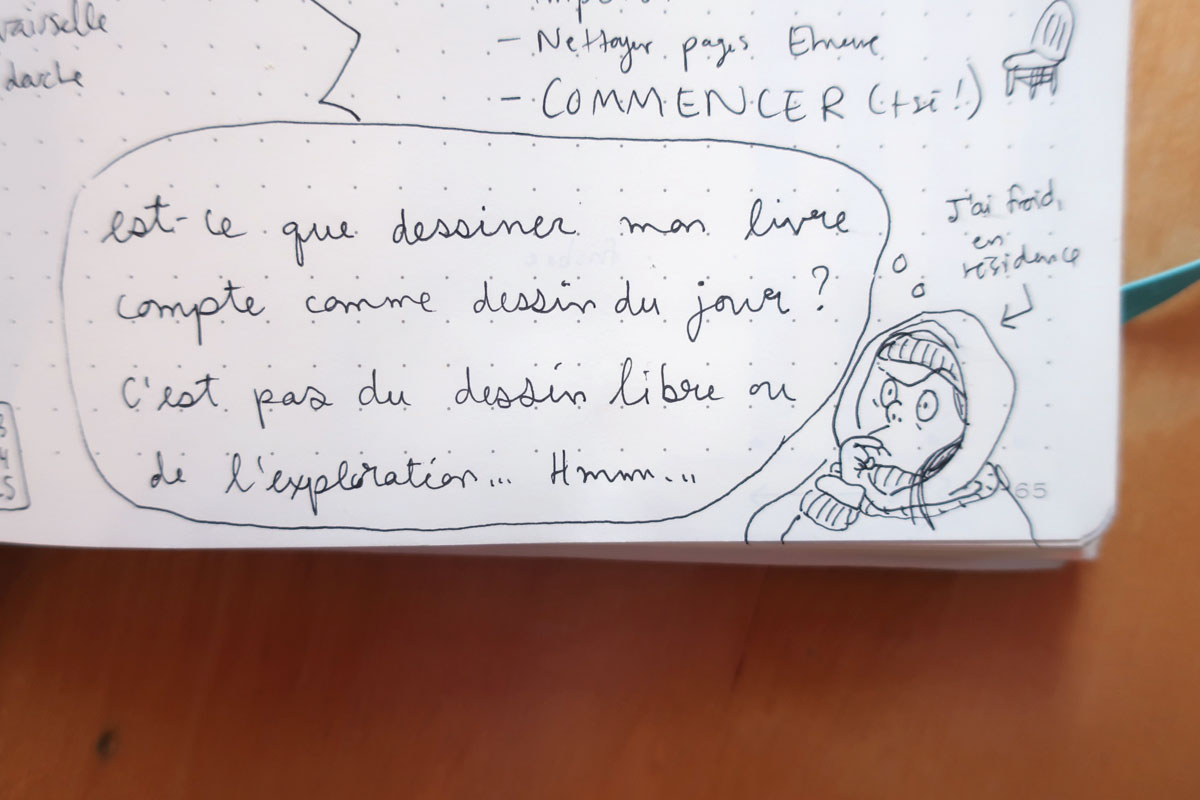 vaisselle
- Nettoyer pages Emeve
- COMMENCER (+sé!)
est-ce que dessiner mon livre
compte comme dessin du jour ?
C'est pas du dessin libre ou
de l'exploration... Hmmm...
J'ai froid,
en
résidence
65